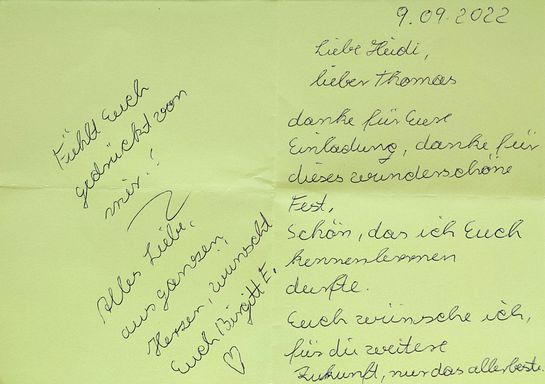 9.09.2022
Liebe Heidi,
lieber Thomas
danke für Eure
Einladung, danke für
dieses wunderschöne
Fest,
Schön, das ich Euch
kennenlernen
durfte.
Euch wünsche ich,
für die weitere
Zukunft, nur das allerbeste.
Fühlt Euch
gedrückt von
mir!
Alles Liebe,
aus ganzen
Herzen, wünscht
Euch Birgitt E.
♡